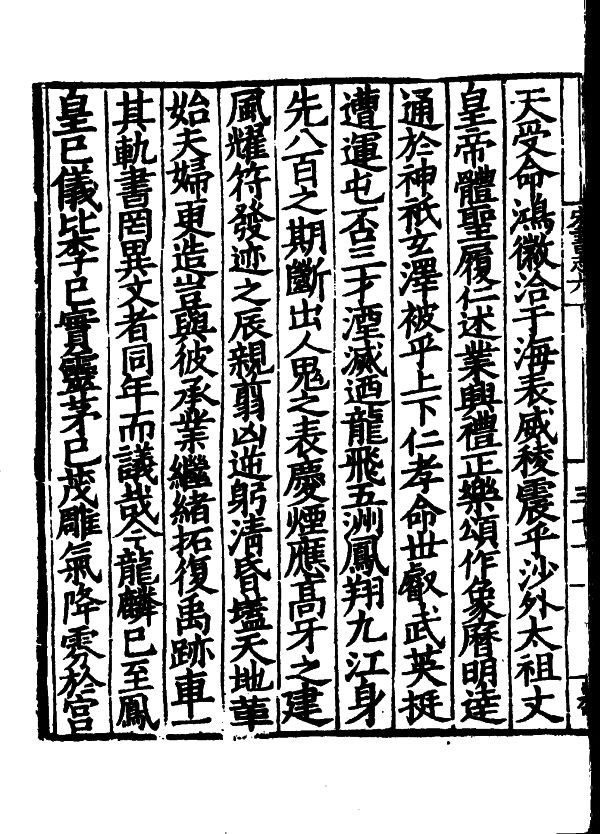 天受命鴻徽洽于海表威稜震乎沙外太祖文
皇帝體聖履仁述業興禮正樂頌作象曆明達
通於神祇玄澤被乎上下仁孝命世叡武英挺
遭運屯否三才湮滅迺龍飛五洲鳳翔九江身
先八百之期斷出人鬼之表慶煙應高牙之建
風耀符發迹之辰親翦凶逆躬清昏壒天地革
始夫婦更造豈與彼承業繼緒拓復禹跡車一
其軌書罔異文者同年而議哉今龍麟已至鳳
皇已儀比李已實靈茅已茂雕氣降雰於宮